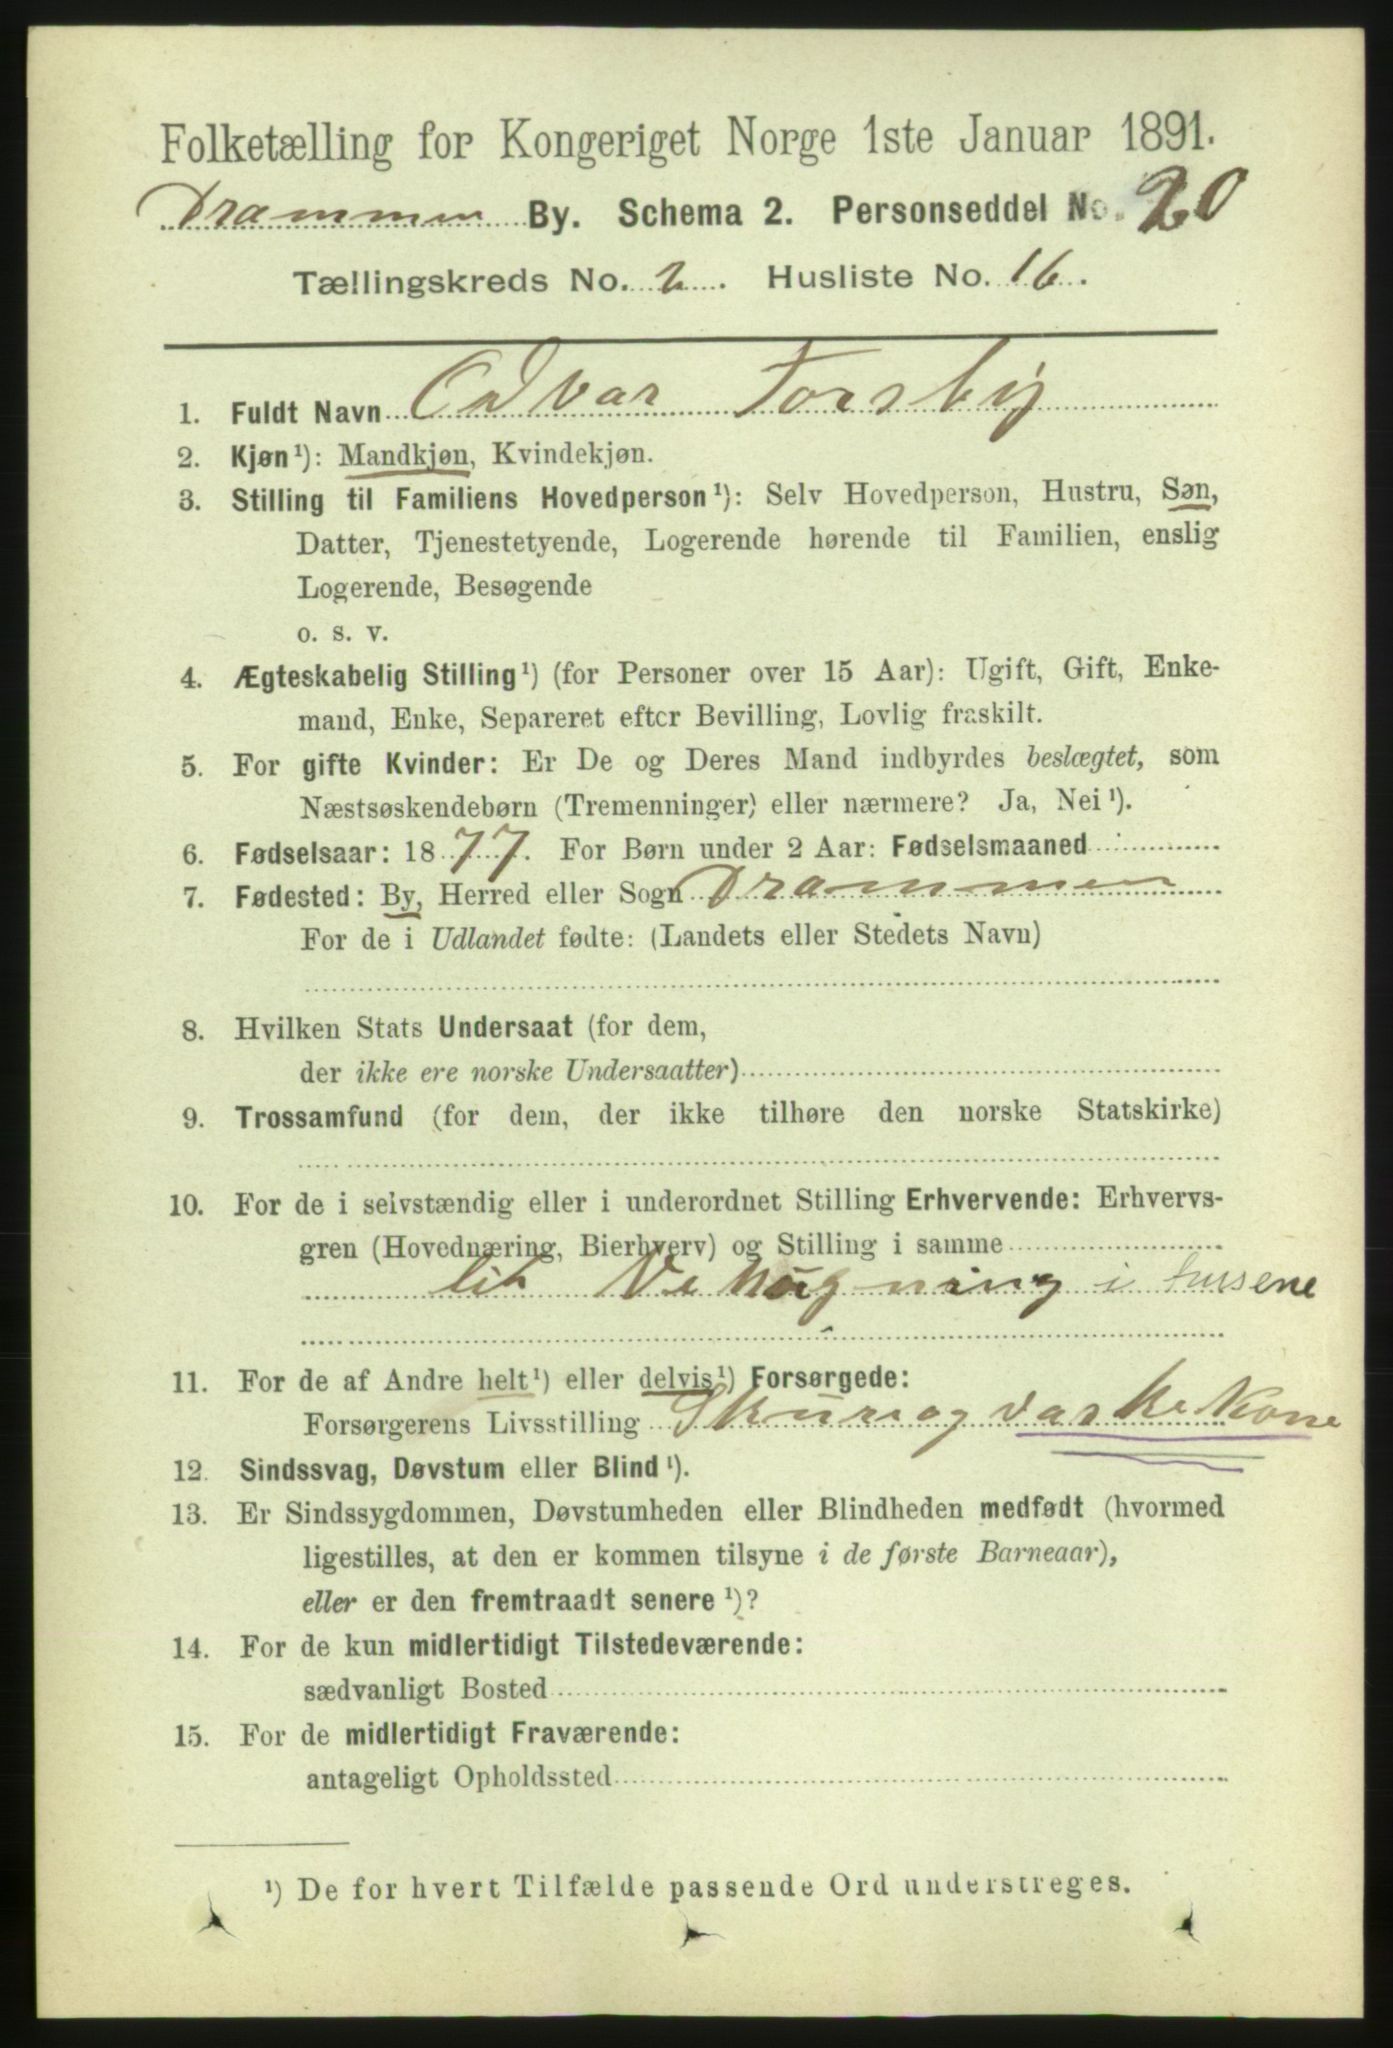 Folketælling for Kongeriget Norge 1ste Januar 1891.
Drammen By. Schema 2. Personseddel No. 20
Tællingskreds No. 2. Husliste No. 16.
1. Fuldt Navn Edvar Forsby
2. Kjøn¹): Mandkjøn, Kvindekjøn.
3. Stilling til Familiens Hovedperson¹): Selv Hovedperson, Hustru, Søn,
Datter, Tjenestetyende, Logerende hørende til Familien, enslig
Logerende, Besøgende
o. s. v.
4. Ægteskabelig Stilling¹) (for Personer over 15 Aar): Ugift, Gift, Enke-
mand, Enke, Separeret efter Bevilling, Lovlig fraskilt.
5. For gifte Kvinder: Er De og Deres Mand indbyrdes beslægtet, som
Næstsøskendebørn (Tremenninger) eller nærmere? Ja, Nei¹).
6. Fødselsaar: 1877. For Børn under 2 Aar: Fødselsmaaned
7. Fødested: By, Herred eller Sogn Drammen
For de i Udlandet fødte: (Landets eller Stedets Navn)
8. Hvilken Stats Undersaat (for dem,
der ikke ere norske Undersaatter)
9. Trossamfund (for dem, der ikke tilhøre den norske Statskirke)
10. For de i selvstændig eller i underordnet Stilling Erhvervende: Erhvervs-
gren (Hovednæring, Bierhverv) og Stilling i samme
lit Vehugning i husene
11. For de af Andre helt¹) eller delvis¹) Forsørgede:
Forsørgerens Livsstilling Skureogvaskekone
12. Sindssvag, Døvstum eller Blind¹).
13. Er Sindssygdommen, Døvstumheden eller Blindheden medfødt (hvormed
ligestilles, at den er kommen tilsyne i de første Barneaar),
eller er den fremtraadt senere¹)?
14. For de kun midlertidigt Tilstedeværende:
sædvanligt Bosted
15. For de midlertidigt Fraværende:
antageligt Opholdssted
¹) De for hvert Tilfælde passende Ord understreges.